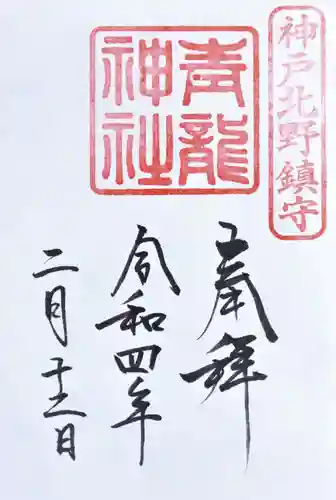 神戸北野鎮守
青龍神社
奉拝
令和四年
二月十二日